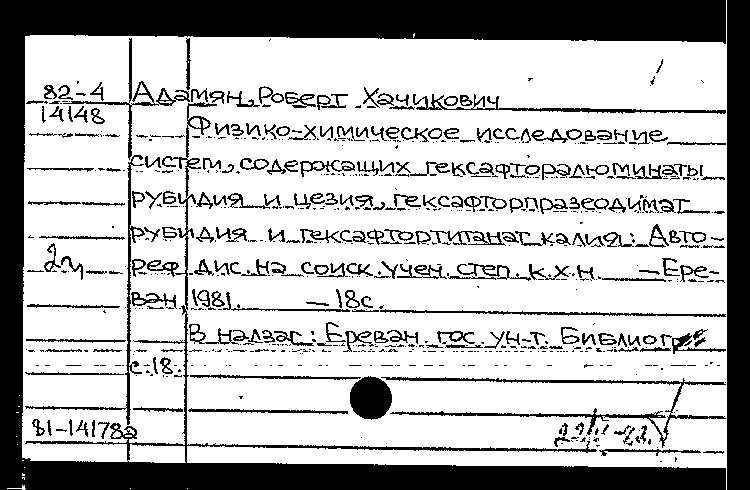 82-4 Адамян, Роберт Хачикович
14148
Физико-химическое исследование
систем, содержащих гексафторалюминаты
рубидия и цезия, гексафторпразеодимат
рубидия и гексафтортитанат калия: Авто-
реф. дис. на соиск. учен. степ. к.х.н. — Ере-
ван, 1981. — 18с.
В надзаг: Ереван. гос. ун-т. Библиогр
с. 18.
81-14178а